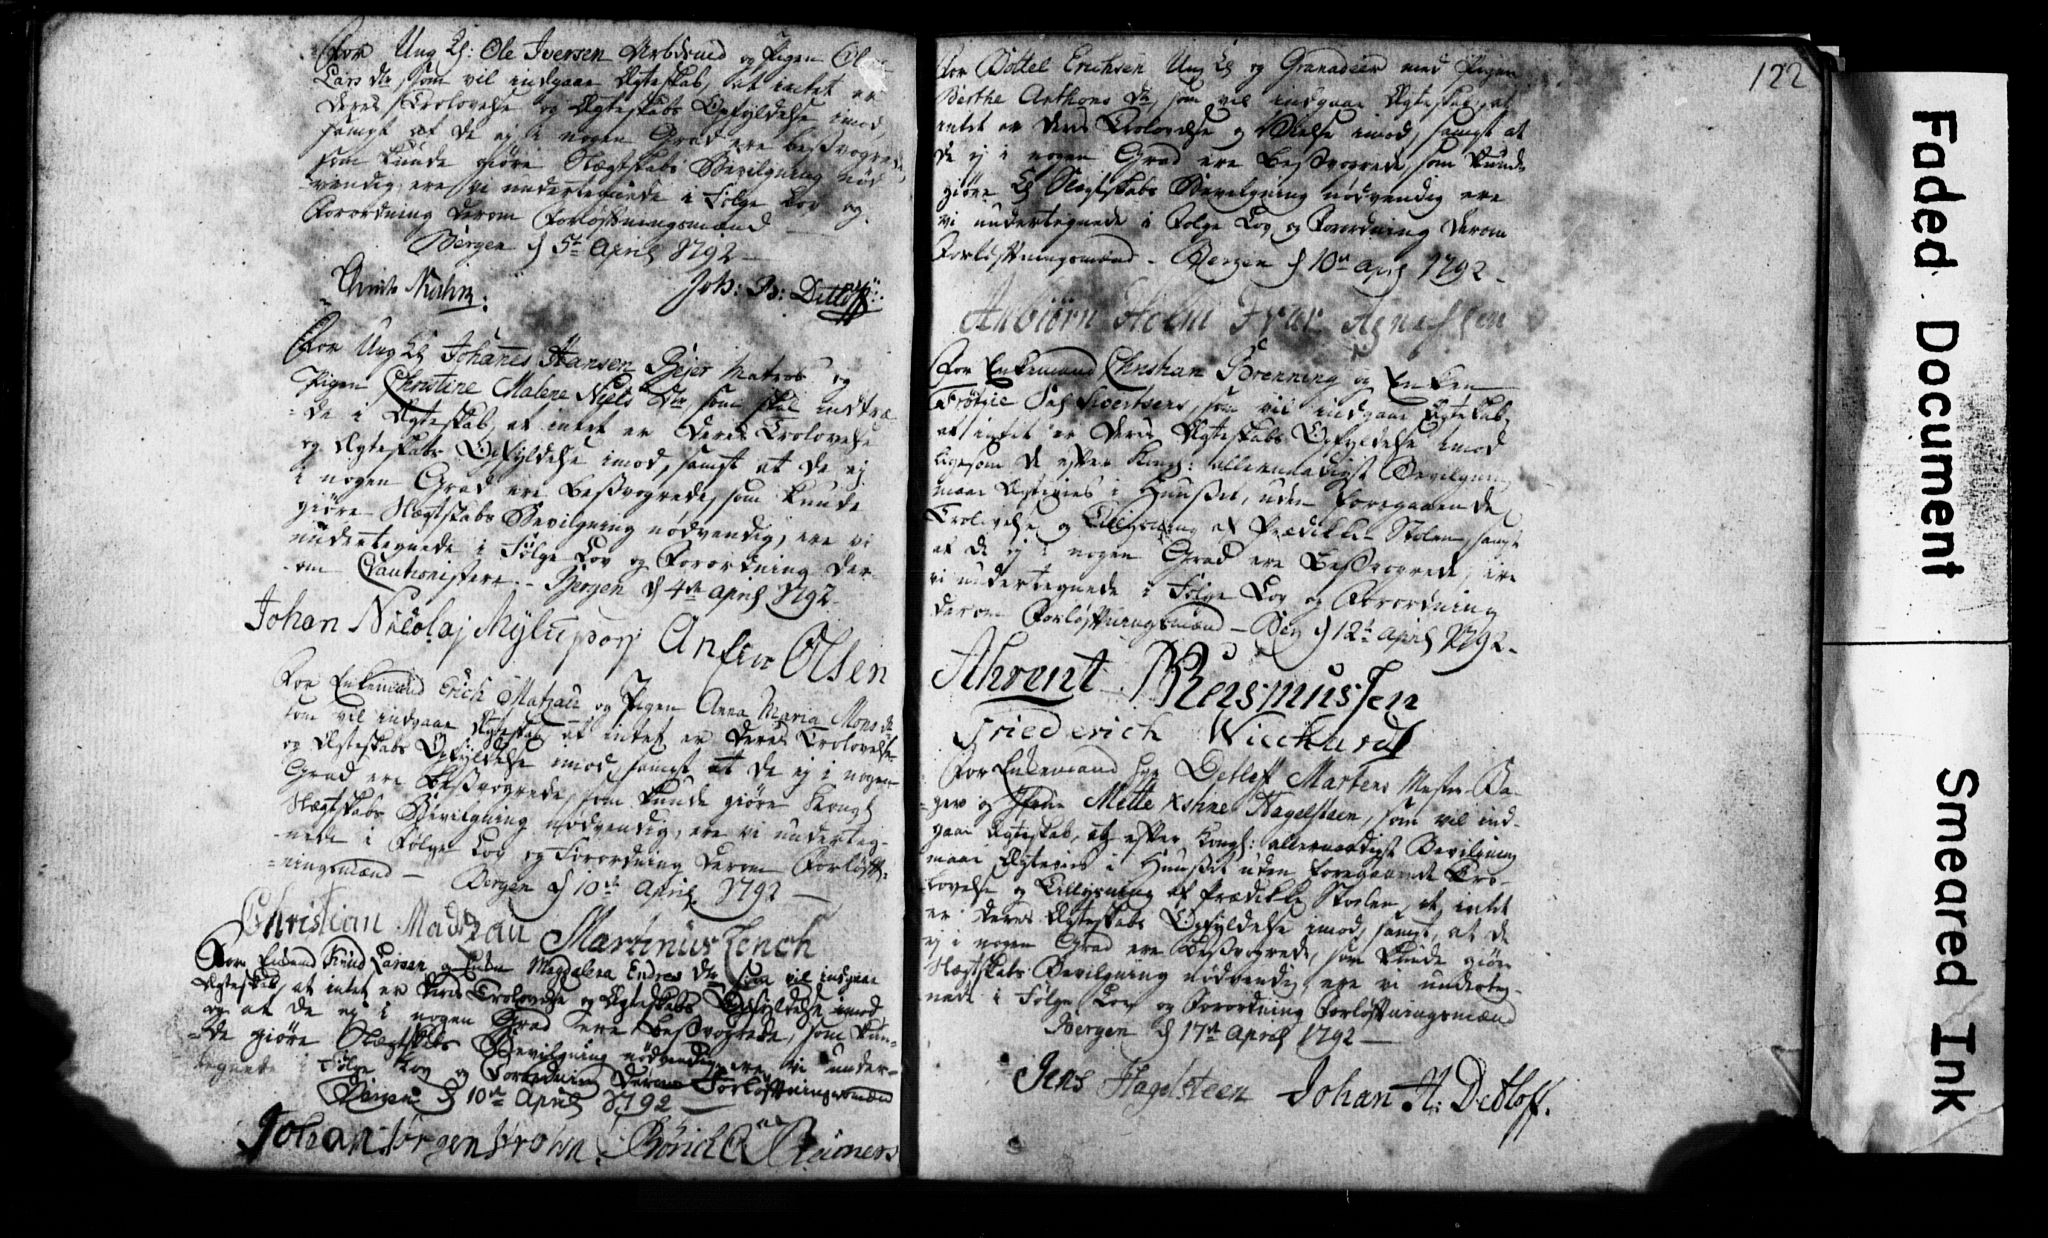 For Ung Kl: Ole Iversen Arbdsmd og Pigen
Lars dr, som vil indgaae Ægteskab, at intet er
deres Trolovelse og Ægteskabs Opfyldelse imod,
sampt at de ej i nogen Grad ere besvogrede,
som kunde giöre Slægtskabs Bevilgning nöd-
vendig, ere vi undertegnede i Fölge Lov og
Forordning derom Forlöftningsmænd
Bergen d 5te April 1792
Joh: B: Ditloff
For Ung Kl Johannes Hansen Bejer Matros og
Pigen Christine Malene Niels Dr som skal indtræ-
de i Ægteskab, at intet er deres Trolovelse
og Ægteskabs Opfyldelse imod, sampt at de ej
i nogen Grad ere besvogrede, som kunde
giöre Slægtskabs Bevilgning nödvendig, ere vi
undertegnede i Fölge Lov og Forordning der-
om Cautionistere. Bergen d 4de April 1792
Johan Nicolaj Myhlipson Anfin Olsen
For Enkemand Erich Matzau og Pigen Anna Maria Mons dr
som vil indgaae Ægteskab, at intet er deres Trolovelse
og Ægteskabs Opfyldelse imod, sampt at de ej i nogen
Grad ere besvogrede, som kunde giöre Kongl
Slægtskabs Bevilgning nödvendig, ere vi underteg-
nede i Fölge Lov og Forordning derom Forlöft-
ningsmænd Bergen d 10de April 1792
Christian Madzau Martinus Lench
For Enkemd Knud Larsen og Enken Magdalena Endres Dr som vil indgaae
Ægteskab, at intet er deres Trolovelse og Ægteskabs Opfyldelse imod,
og at de ej i nogen Grad ere besvogrede, som kun-
de giöre Slægtskabs Bevilgning nödvendig, ere vi under-
tegnede i Fölge Lov og Forordning derom Forlöftningsmænd
Bergen d 10de April 1792
Johan Jörgen Brohn Reimers
122
For Bottel Erichsen Ung Kl og Granadeer med Pigen
Berthe Anthons Dr, som vil indgaae Ægteskab, at
intet er deres Trolovelse og Vielse imod, sampt at
de ej i nogen Grad ere besvogrede, som kunde
giöre Kl Slægtskabs Bevilgning nödvendig ere
vi undertegnede i Fölge Lov og Forordning derom
Forlöftningsmænd - Bergen d 10de April 1792
Anbiörn Holm Ivar Agnessen
For Enkemand Christian Brenning og Enken
Sal Sivertsens, som vil indgaae Ægteskab,
at intet er deres Ægteskabs Opfyldelse imod
ligesom de efter Kongl: allernaadigst Bevilgning
maae Ægtevies i Huuset, uden foregaaende
Trolovelse og Tillysning af Prædikke-Stolen, sampt
at de ej i nogen Grad ere besvogrede, ere
vi undertegnede i Fölge Lov og Forordning
derom Forlöftningsmænd - Bergen d 12te April 1792
Ahrent Rasmussen
Friederich Wiechardt
For Enkemand Hr Detlef Martens Mester Ba-
ger og Pigen Mette Hagelsteen, som vil ind-
gaae Ægteskab, at efter Kongl: allernaadigst Bevilgning
maae Ægtevies i Huuset uden foregaaende Tro-
lovelse og Tillysning af Prædikke Stolen, at intet
er deres Ægteskabs Opfyldelse imod, sampt, at de
ej i nogen Grad ere besvogrede, som kunde giöre
Slægtskabs Bevilgning nödvendig, ere vi underteg-
nede i Fölge Lov og Forordning Forlöftningsmænd
Bergen d 17de April 1792
Jens Hagelsteen Johan H: Detloff.
Faded Document
Smeared Ink